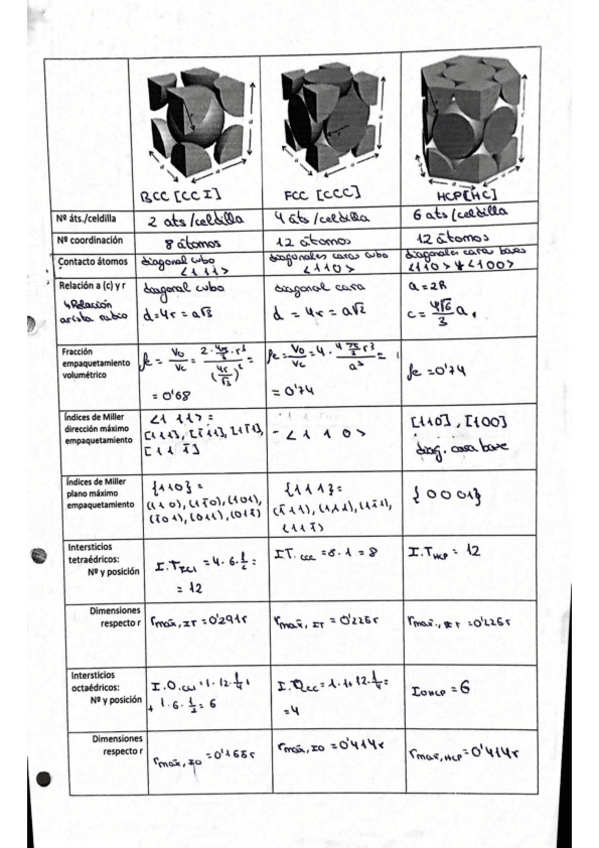 BCC [CCI]
FCC [CCC]
HCP [HC]
Nº áts./celdilla
2 ats/celdilla
4 áts/celdilla
6 ats/celdilla
Nº coordinación
8 átomos
12 átomos
12 átomos
Contacto átomos
diagonal cubo
<111>
diagonales caras cubo
<110>
diagonales caras bases
<110> y <100>
Relación a (c) y r
↳ Relación
arista radio
diagonal cubo
d=4r = a√3
diagonal cara
d = 4r = a√2
a = 2R
c = 4√6/3 a
Fracción
empaquetamiento
volumétrico
= 0'68
= 0'74
fe = 0'74
Índices de Miller
dirección máximo
empaquetamiento
<111> =
- <110>
[110], [100]
diag. cara base
Índices de Miller
plano máximo
empaquetamiento
{110} =
(110), (11̄0), (101),
(1̄01), (011), (011̄)
{111} =
(1̄11), (111), (11̄1),
(111̄)
{0001}
Intersticios
tetraédricos:
Nº y posición
= 12
I.T.CCC = 8·1 = 8
I.THCP = 12
Dimensiones
respecto r
rmax, IT = 0'291r
rmax, IT = 0'225r
= 0'225r
Intersticios
octaédricos:
Nº y posición
+ 1·6·1/2 = 6
= 4
IOHCP = 6
Dimensiones
respecto r
rmax, IO = 0'155r
rmax, IO = 0'414r
rmax, HCP = 0'414r